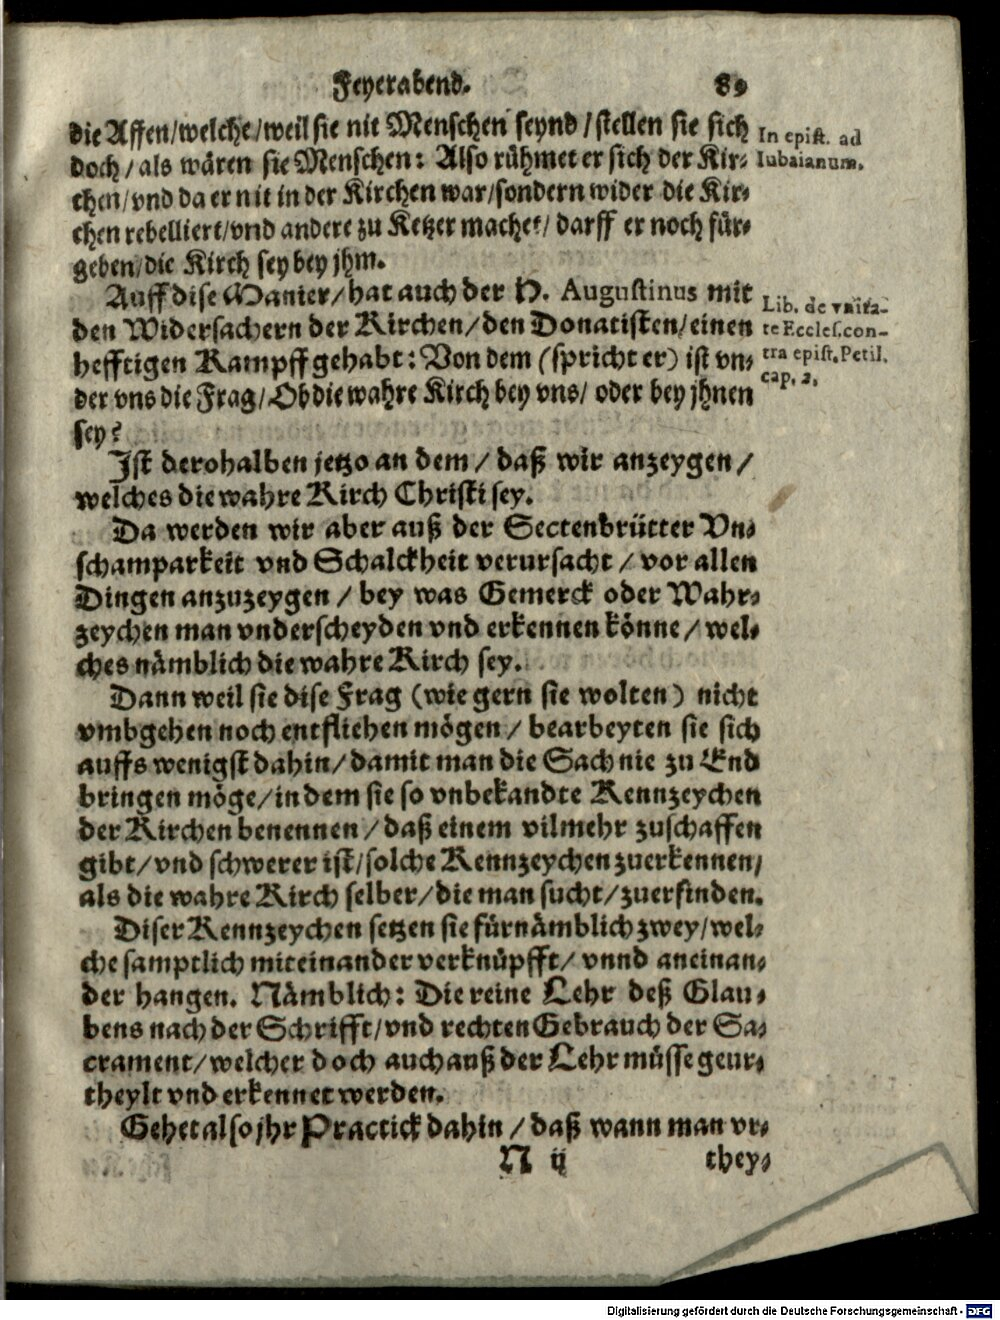 Feyerabend. 89
die Affen/welche/weil sie nit Menschen seynd/stellen sie sich
doch/als wären sie Menschen: Also rühmet er sich der Kir-
chen/vnd da er nit in der Kirchen war/sondern wider die Kir-
chen rebelliert/vnd andere zu Ketzer machet/darff er noch für-
geben/die Kirch sey bey jhm.
In epist. ad
Iubaianum.
Auff dise Manier/hat auch der H. Augustinus mit
den Widersachern der Kirchen/den Donatisten/einen
hefftigen Kampff gehabt: Von dem (spricht er) ist vn-
der vns die Frag/Ob die wahre Kirch bey vns/oder bey jhnen
sey?
Lib. de vnita-
te Eccles. con-
tra epist. Petil.
cap. 2.
Ist derohalben jetzo an dem/daß wir anzeygen/
welches die wahre Kirch Christi sey.
Da werden wir aber auß der Sectenbrütter Vn-
schamparkeit vnd Schalckheit verursacht/vor allen
Dingen anzuzeygen/bey was Gemerck oder Wahr-
zeychen man vnderscheyden vnd erkennen könne/wel-
ches nämblich die wahre Kirch sey.
Dann weil sie dise Frag (wie gern sie wolten) nicht
vmbgehen noch entfliehen mögen/bearbeyten sie sich
auffs wenigst dahin/damit man die Sach nie zu End
bringen möge/in dem sie so vnbekandte Kennzeychen
der Kirchen benennen/daß einem vilmehr zuschaffen
gibt/vnd schwerer ist/solche Kennzeychen zuerkennen/
als die wahre Kirch selber/die man sucht/zuerfinden.
Diser Kennzeychen setzen sie fürnämblich zwey/wel-
che samptlich miteinander verknüpfft/vnnd aneinan-
der hangen. Nämblich: Die reine Lehr deß Glau-
bens nach der Schrifft/vnd rechten Gebrauch der Sa-
crament/welcher doch auch auß der Lehr müsse geur-
theylt vnd erkennet werden.
Gehet also jhr Practick dahin/daß wann man vr-
N ij they-
Digitalisierung gefördert durch die Deutsche Forschungsgemeinschaft - DFG